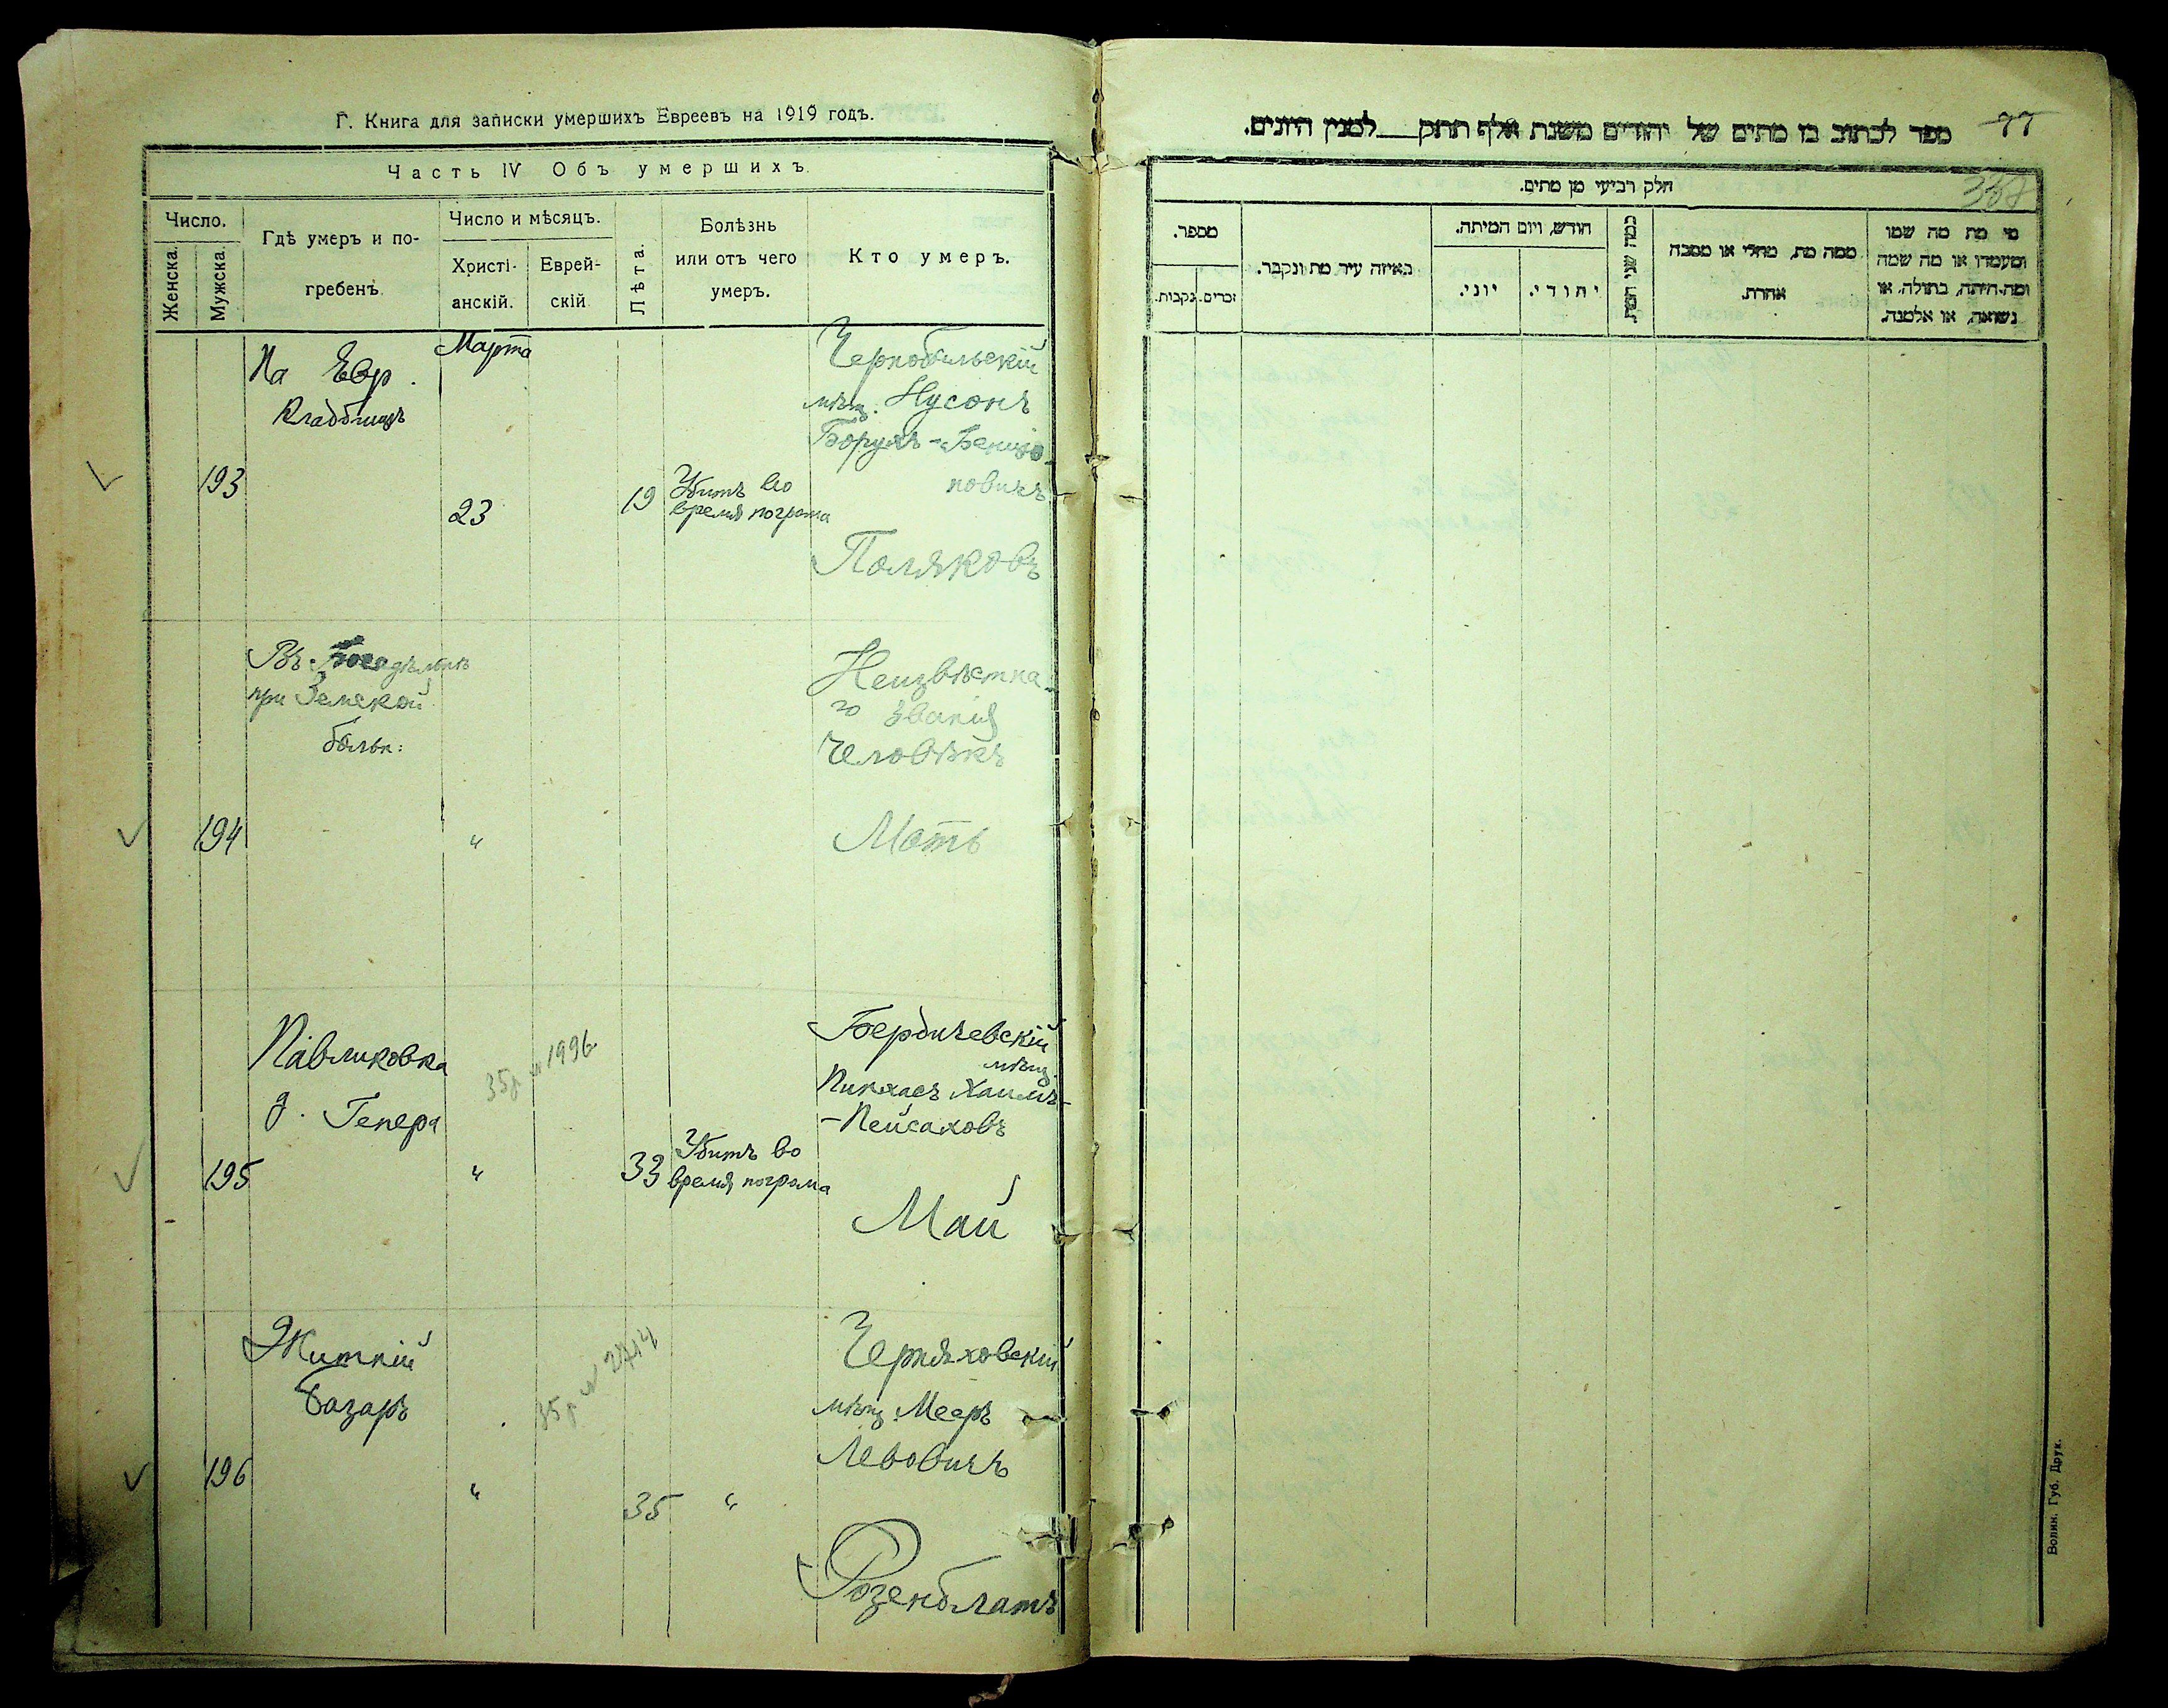 Г. Книга для записки умершихъ Евреевъ на 1919 годъ.
Часть IV Объ умершихъ.
Число.
Женска.
Мужска.
Гдѣ умеръ и по-
гребенъ
Число и мѣсяцъ.
Христі-
анскій.
Еврей-
скій
Лѣта.
Болѣзнь
или отъ чего
умеръ.
Кто умеръ.
На Евр.
Кладбищѣ
Марта
Чернобыльскій
мѣщ. Нусонъ
Борухъ-Бенціо-
новичъ
193
23
19
Убитъ во
время погрома
Поляковъ
Въ Богадѣльнѣ
при Земской
больн:
Неизвѣстна-
го званія
человѣкъ
194
"
Мать
Павликовка
д. Генера
35 р 1996
Бердичевскій
мѣщ.
Пинхасъ Хаимъ-
-Пейсаховъ
195
"
33
Убитъ во
время погрома
Май
Житній
базаръ
35 р 2444
Черняховскій
мѣщ. Мееръ
Лебовичъ
196
"
35
"
Розенблатъ
ספר לכתוב בו מתים של יהודים משנת אלף תתק__למנין היונים.
77
338
חלק רביעי מן מתים.
מספר.
זכרים.
נקבות.
באיזה עיר מת ונקבר.
חודש, ויום המיתה.
יוני.
יהודי.
כמה שני המת
ממה מת, מחלי או מסבה
אחרת.
מי מת מה שמו
ומעמדו או מה שמה
ומה היתה, בתולה, או
נשואה, או אלמנה.
Волин. Губ. Друк.